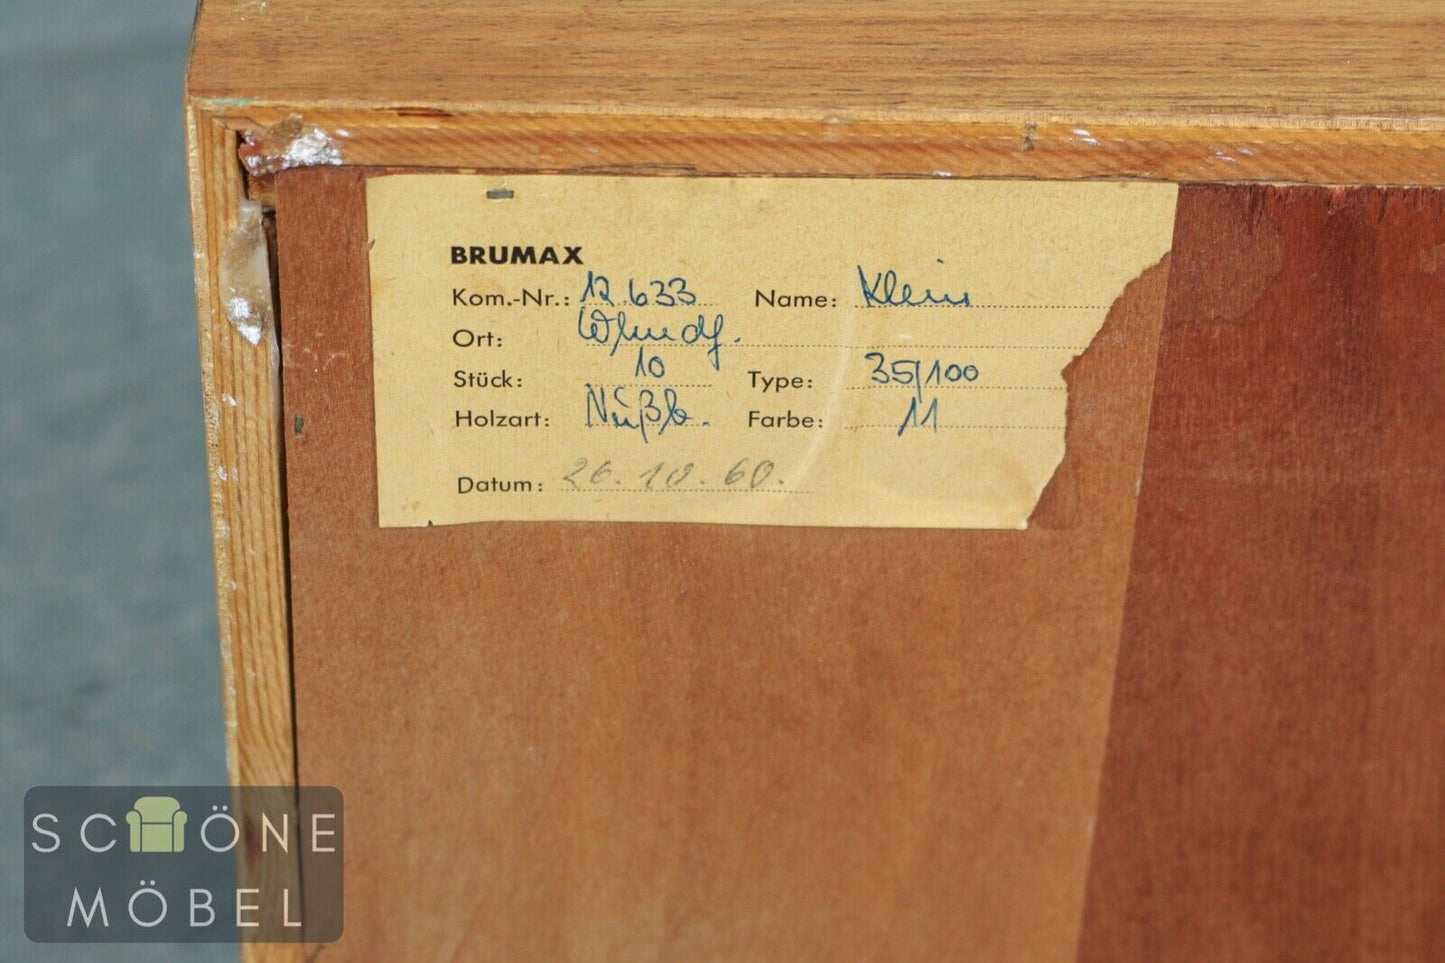 BRUMAX
Kom.-Nr.: 12.633 Name: Klein
Ort:
Stück: 10 Type: 35/100
Holzart: Nußb. Farbe: 11
Datum: 26.10.60.
SCHÖNE
MÖBEL